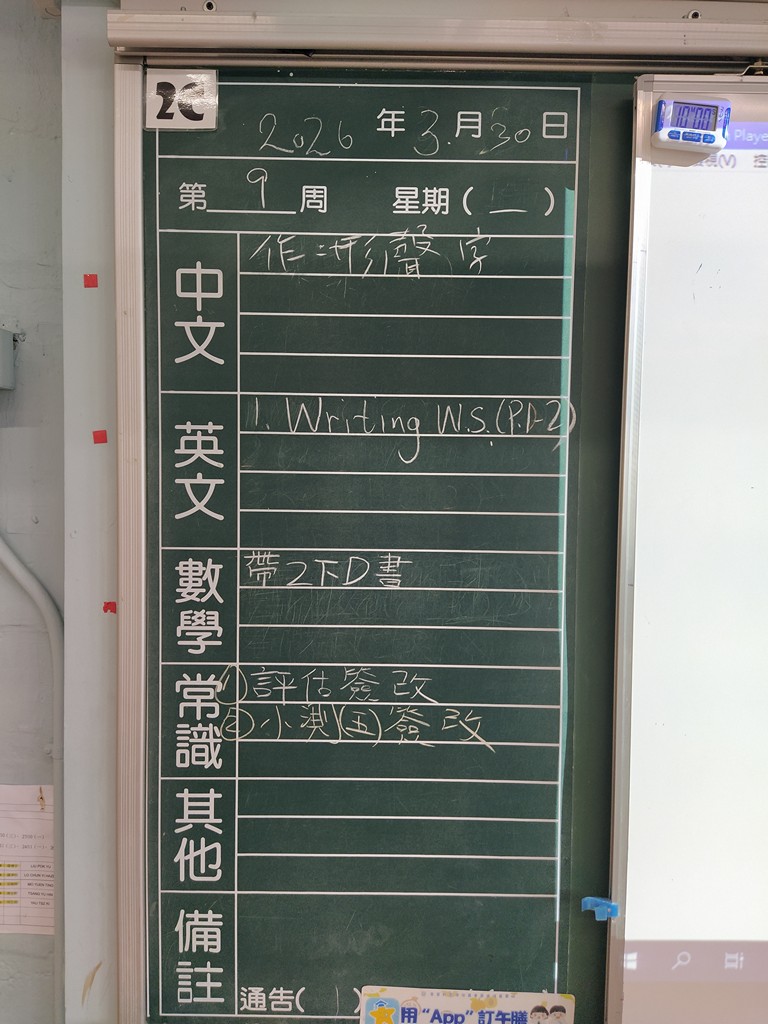 2C
2026 年 3 月 30 日
第 9 周 星期 ( 一 )
中文
作二形聲字
英文
1. Writing W.S. (P.1-2)
數學
帶2下D書
常識
① 評估簽改
② 小測(五)簽改
其他
備註
通告( 1 )
用 "App" 訂午膳
10:00
Playe